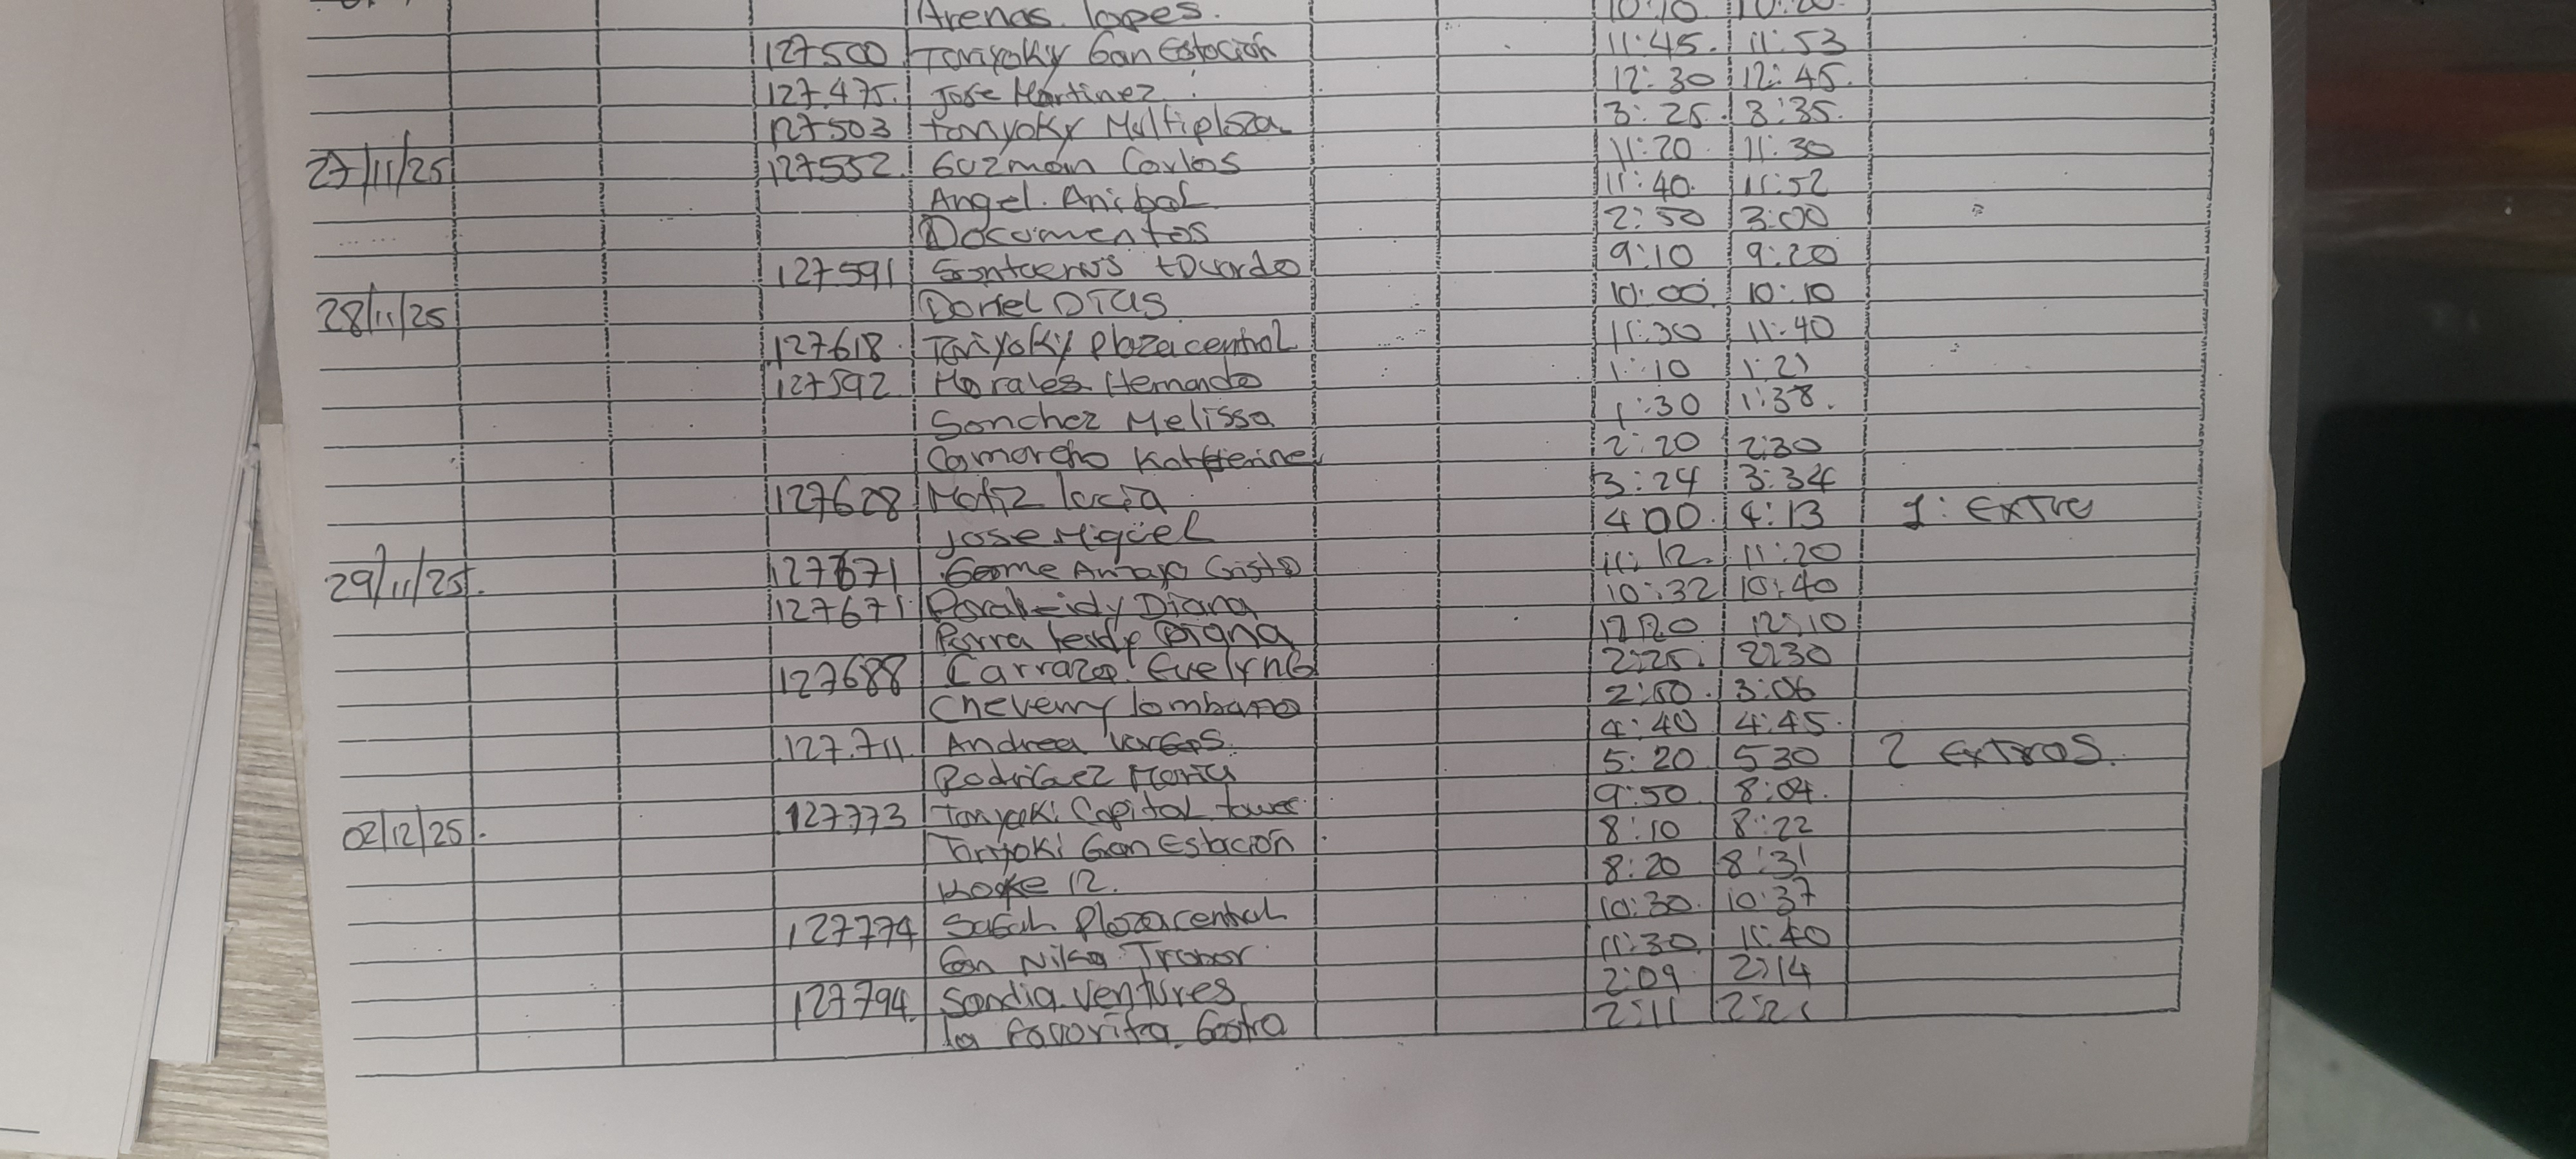 Arenas. lopes. 10:10 10:20
127500 Taniyoky Gan Estación 11:45. 11:53
127.475. Jose Martinez 12:30 12:45.
127503 tanyoky Multiplaza 3:25. 3:35.
27/11/25 127552. Guzman Carlos 11:20 11:30
Angel. Anibal 11:40. 11:52
Documentos 2:50 3:00
127591 9:10 9:20
28/11/25 Daniel DIas 10:00 10:10
127618. Taniyoky plaza central 11:30 11:40
127592 Morales Hernando 1:10 1:21
Sanchez Melissa 1:30 1:38.
Camareño Katherine 2:20 2:30
127628 Motiz lucia 3:24 3:34
Jose Miguel 400. 4:13 1: Extra
29/11/25. 127671 11:12. 11:20
127671. Diana 10:32 10:40
Parra leidy Diana 1220 12:10
127688 Evelyn 2:25. 2:30
lombano 2:50. 3:06
127.711. Andrea Vargas. 4:40 4:45.
Rodriguez Maria 5:20 530 2 extras.
02/12/25. 127773 Tanyoki Capital tower 9:50 8:04.
Tanyoki Gan Estación 8:10 8:22
Kogke 12. 8:20 8:31
127774 Plaza central 10:30. 10:37
Gan 11:30 11:40
127794. Sandia ventures 2:09 2:14
la favorita. Gastro 2:11 2:21